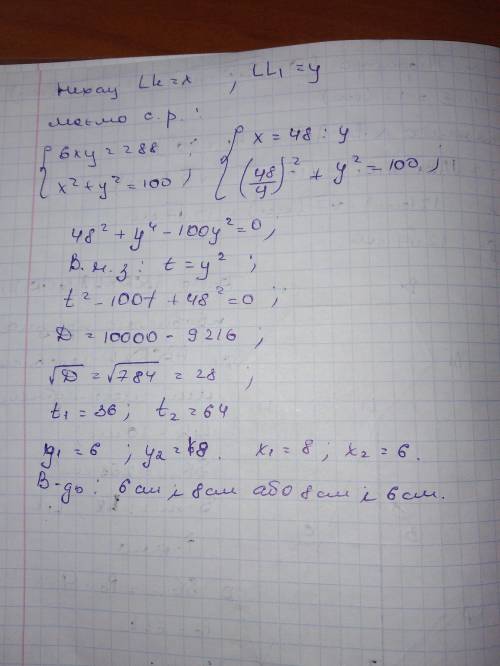 Нехай Lk = x ; LL₁ = y
маємо с.р. :
{ 6xy = 288 ; x² + y² = 100 ; { x = 48 : y ; (48/y)² + y² = 100 ;
48² + y⁴ - 100y² = 0 ;
В.н.з : t = y² ;
t² - 100t + 48² = 0 ;
D = 10000 - 9216 ;
√D = √784 = 28 ;
t₁ = 36 ; t₂ = 64
y₁ = 6 ; y₂ = 8 . x₁ = 8 ; x₂ = 6 .
В-дь : 6 см і 8 см або 8 см і 6 см.